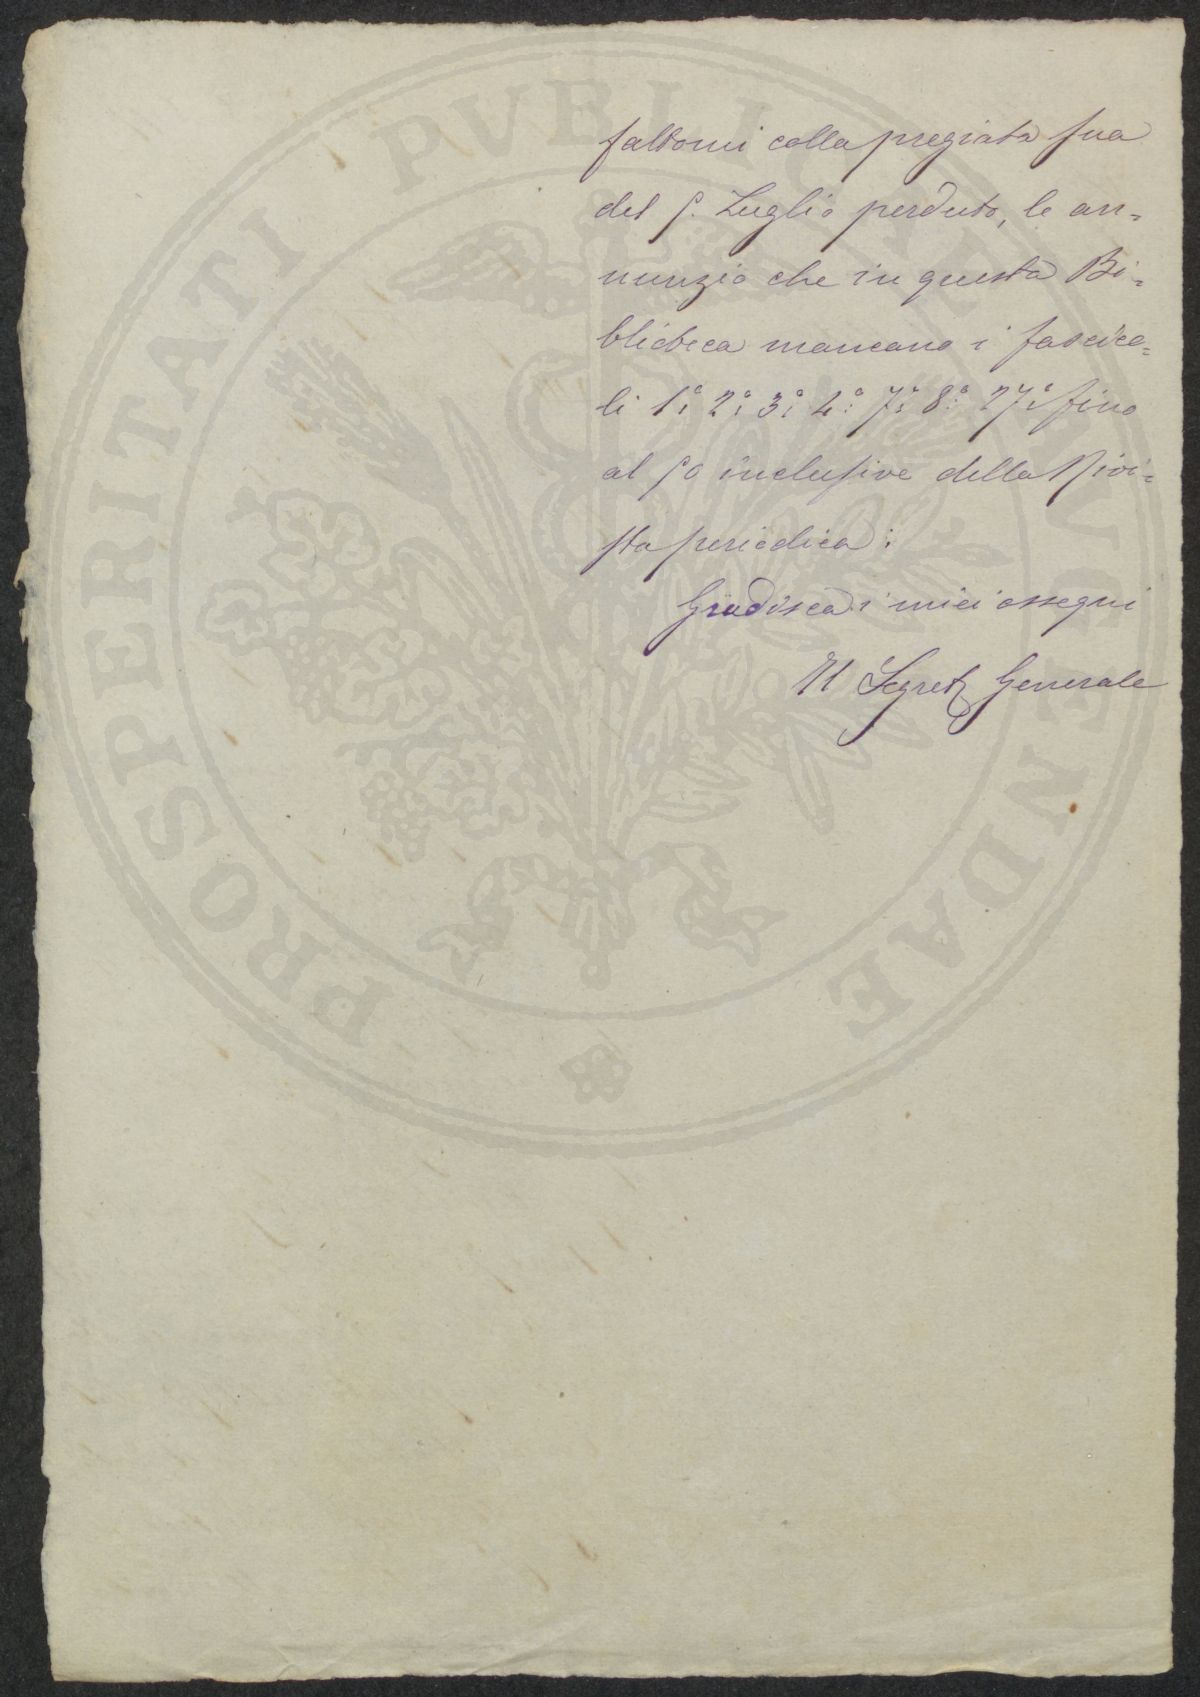 fattomi colla pregiata sua
del 5. Luglio perduto, le an=
nunzio che in questa Bi=
blioteca mancano i fascico=
li 1º 2º 3º 4º 7º 8º 27º fino
al 50 inclusive della Rivi=
sta periodica:
Gradisca i miei ossequi
Il Segret. Generale
PROSPERITATI PVBLICAE AVGENDAE